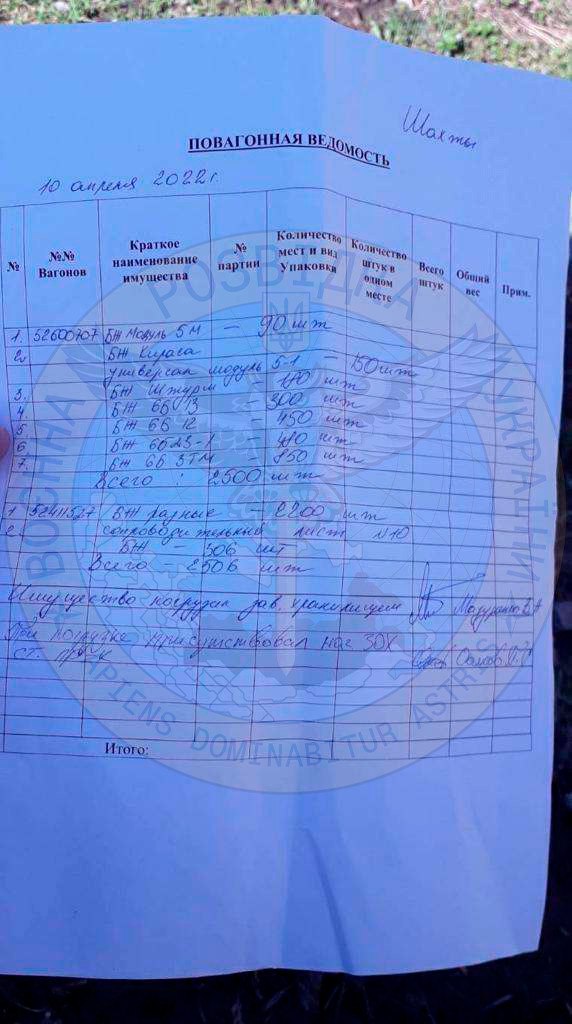 Шахты
ПОВАГОННАЯ ВЕДОМОСТЬ
10 апреля 2022г.
№
№№ Вагонов
Краткое наименование имущества
№ партии
Количество мест и вид Упаковки
Количество штук в одном месте
Всего штук
Общий вес
Прим.
1. 52600707 БЖ Модуль 5М — 90 шт
2. БЖ Кираса
универсал модуль 5-1 — 150 шт
3. БЖ Штурм — шт
4 БЖ 6Б13 — 300 шт
5 БЖ 6Б12 — 450 шт
6 БЖ 6Б23-1 шт
7. БЖ 6Б 3ТМ — 850 шт
Всего : 2500 шт
1 БЖ разные — 2200 шт
2. сопроводительный лист №10
БЖ — 306 шт
Всего — 2506 шт
Имущество погрузил зав. хранилищем
При погрузке присутствовал нас ЗОХ
ст. пр-к
Итого:
ВОЄННА РОЗВІДКА УКРАЇНИ
SAPIENS DOMINABITUR ASTRIS